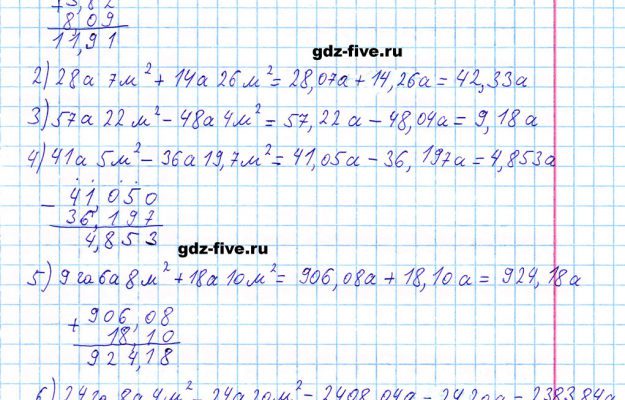 +3,82
8,09
11,91
gdz-five.ru
2) 28а 7м² + 14а 26м² = 28,07а + 14,26а = 42,33а
3) 57а 22м² - 48а 4м² = 57,22а - 48,04а = 9,18а
4) 41а 5м² - 36а 19,7м² = 41,05а - 36,197а = 4,853а
- 41,050
36,197
4,853
gdz-five.ru
5) 9га 6а 8м² + 18а 10м² = 906,08а + 18,10а = 924,18а
+ 906,08
18,10
924,18
6) 24га 8а 4м² - 24а 20м² = 2408,04а - 24,20а = 2383,84а